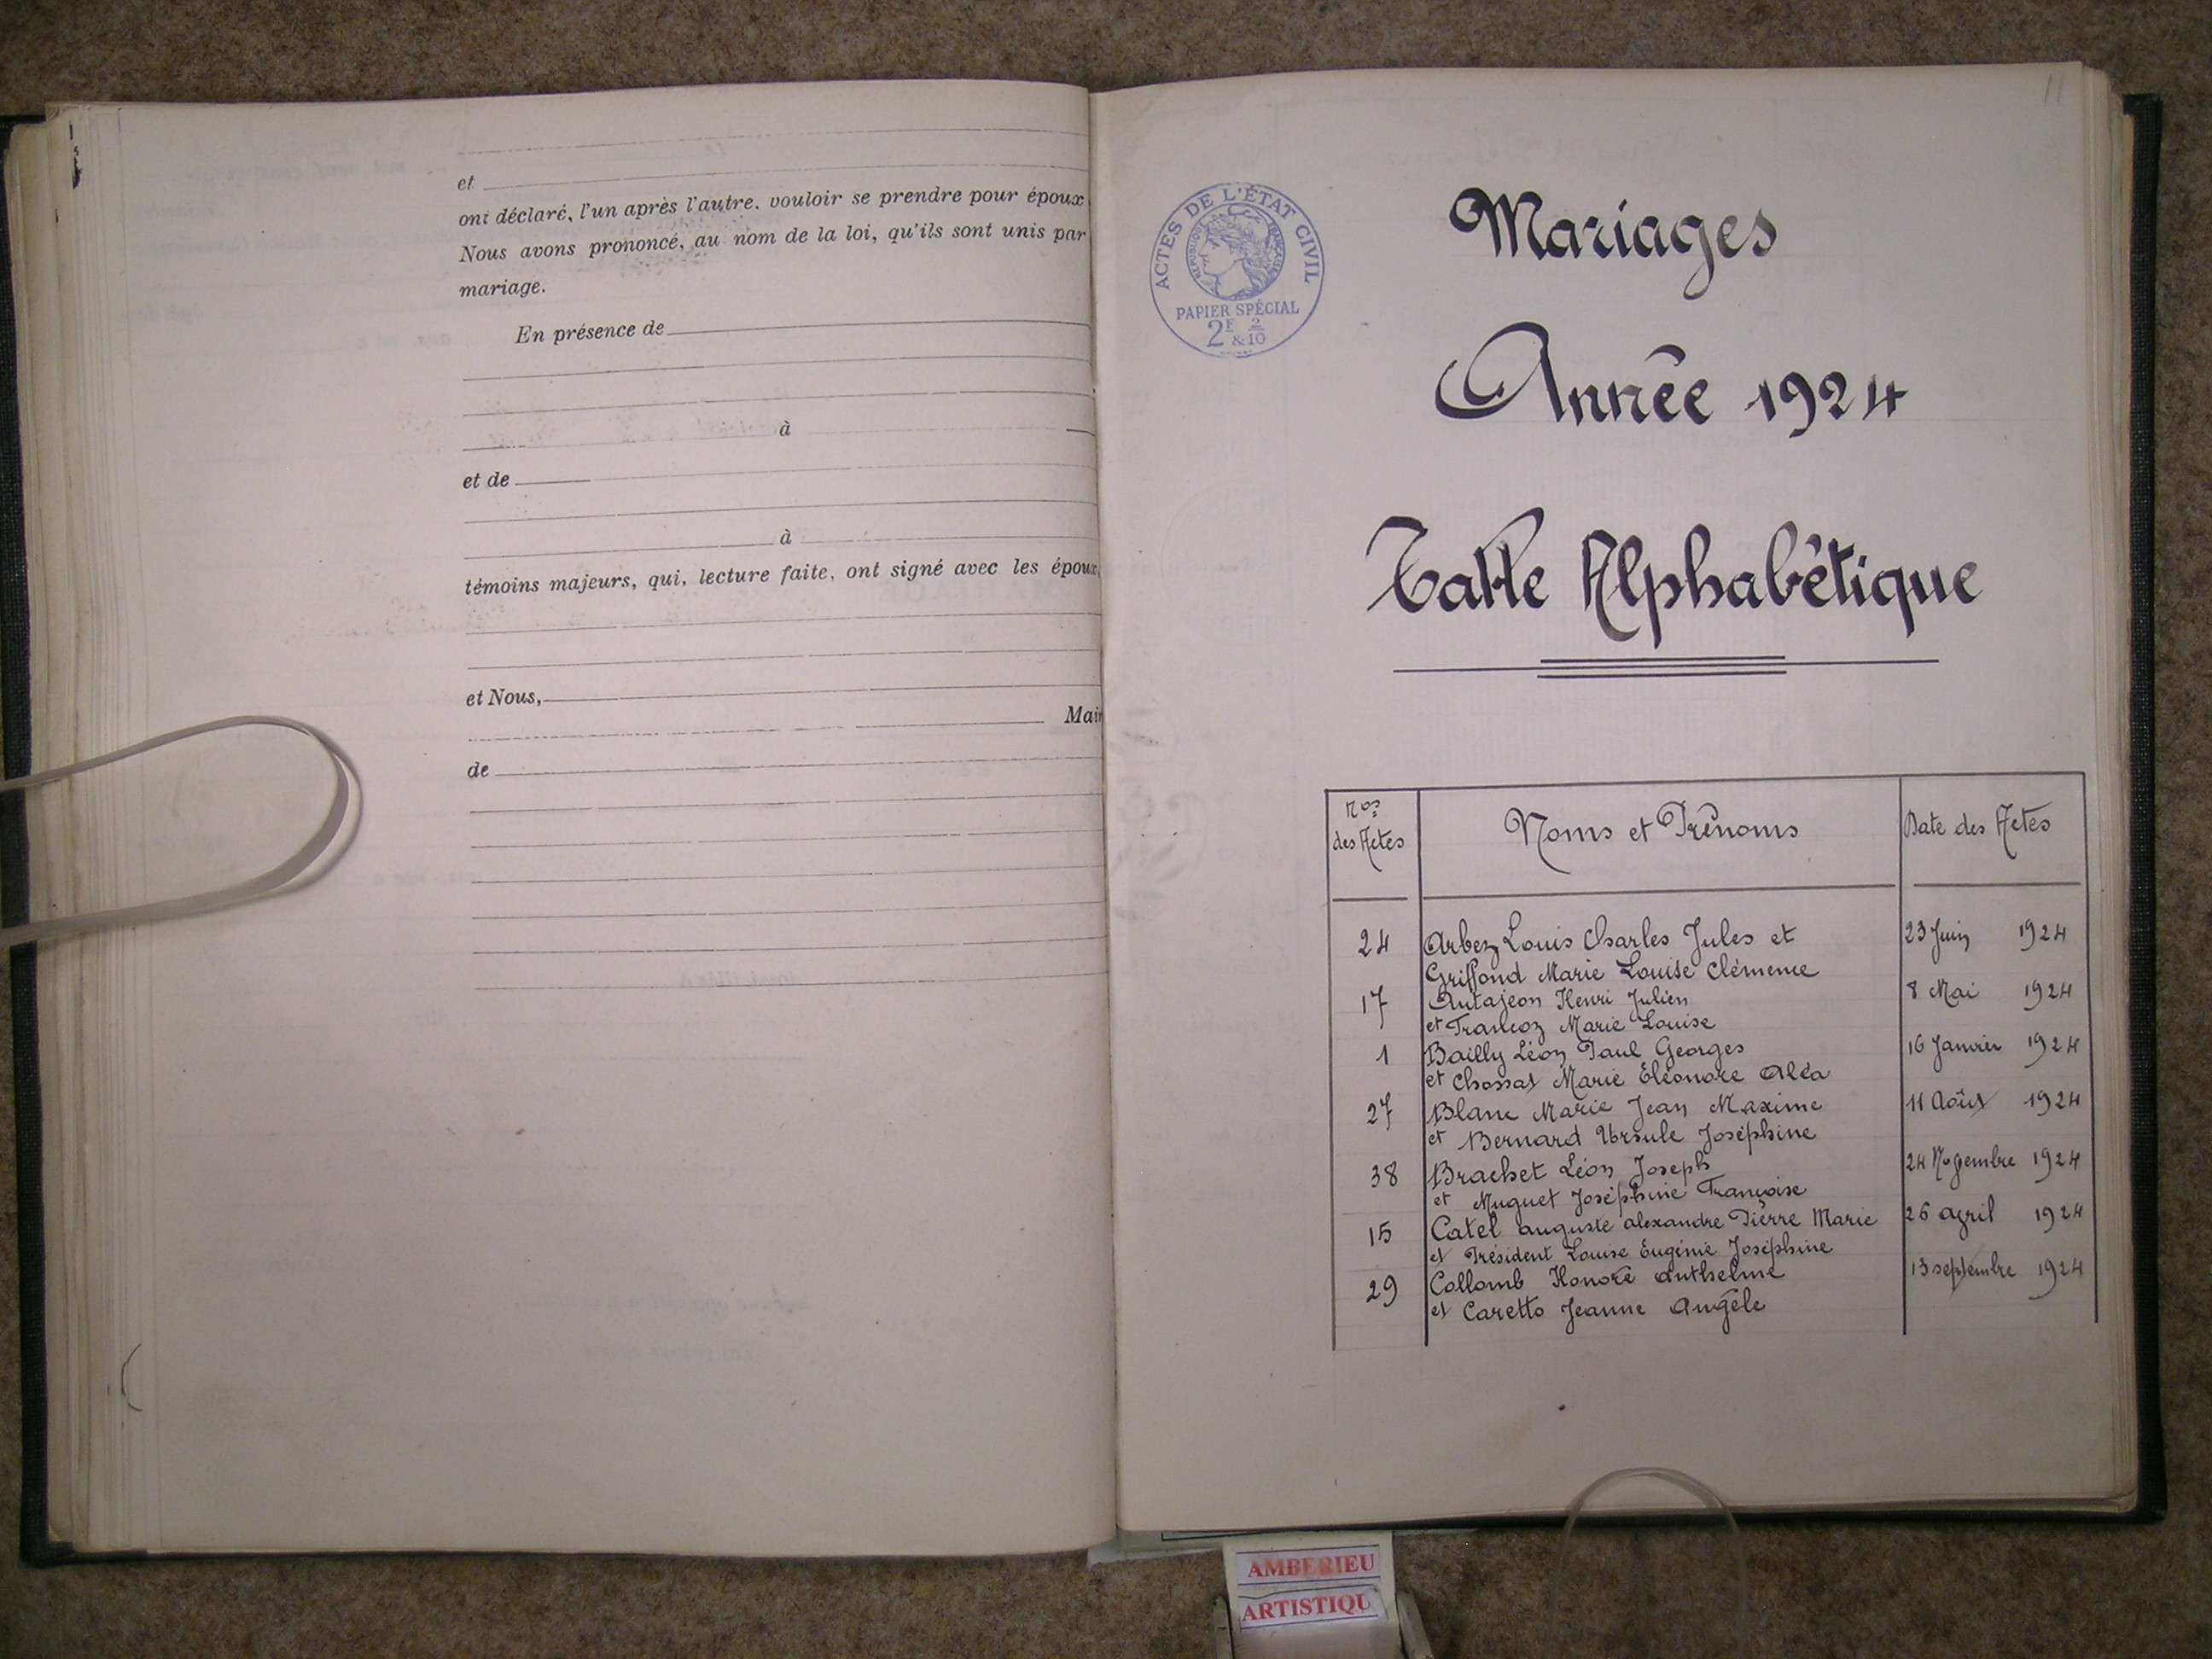 et
ont déclaré, l'un après l'autre, vouloir se prendre pour époux
Nous avons prononcé, au nom de la loi, qu'ils sont unis par
mariage.
En présence de
à
et de
à
témoins majeurs, qui, lecture faite, ont signé avec les époux
et Nous,
Mair
de
11
ACTES DE L'ÉTAT CIVIL
RÉPUBLIQUE FRANÇAISE
PAPIER SPÉCIAL
2F & 2/10
Mariages
Année 1924
Table Alphabétique
Nos des Actes
Noms et Prénoms
Date des Actes
24 Arbez Louis Charles Jules et 23 Juin 1924
Griffond Marie Louise Clémence
17 Autajeon Henri Julien 8 Mai 1924
et Francoz Marie Louise
1 Bailly Léon Paul Georges 16 Janvier 1924
et Chossat Marie Éléonore Aléa
27 Blanc Marie Jean Maxime 11 Août 1924
et Bernard Ursule Joséphine
38 Brachet Léon Joseph 24 Novembre 1924
et Muguet Joséphine Françoise
15 Catel Auguste Alexandre Pierre Marie 26 Avril 1924
et Président Louise Eugénie Joséphine
29 Collomb Honoré Anthelme 13 septembre 1924
et Caretto Jeanne Angèle
AMBERIEU
ARTISTIQU